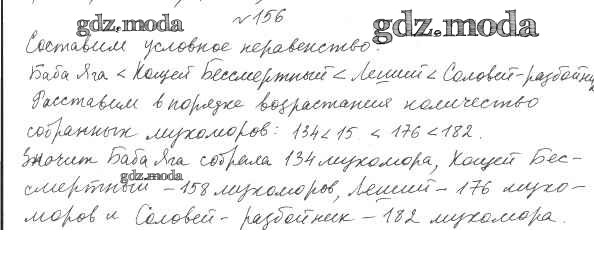 №156
gdz.moda gdz.moda
Составим условное неравенство:
Баба Яга < Кощей Бессмертный < Леший < Соловей-разбойник
Расставим в порядке возрастания количество
собранных мухоморов: 134 < 15 < 176 < 182.
Значит Баба Яга собрала 134 мухомора, Кощей Бес-
gdz.moda
смертный – 158 мухоморов, Леший – 176 мухо-
моров и Соловей-разбойник – 182 мухомора.